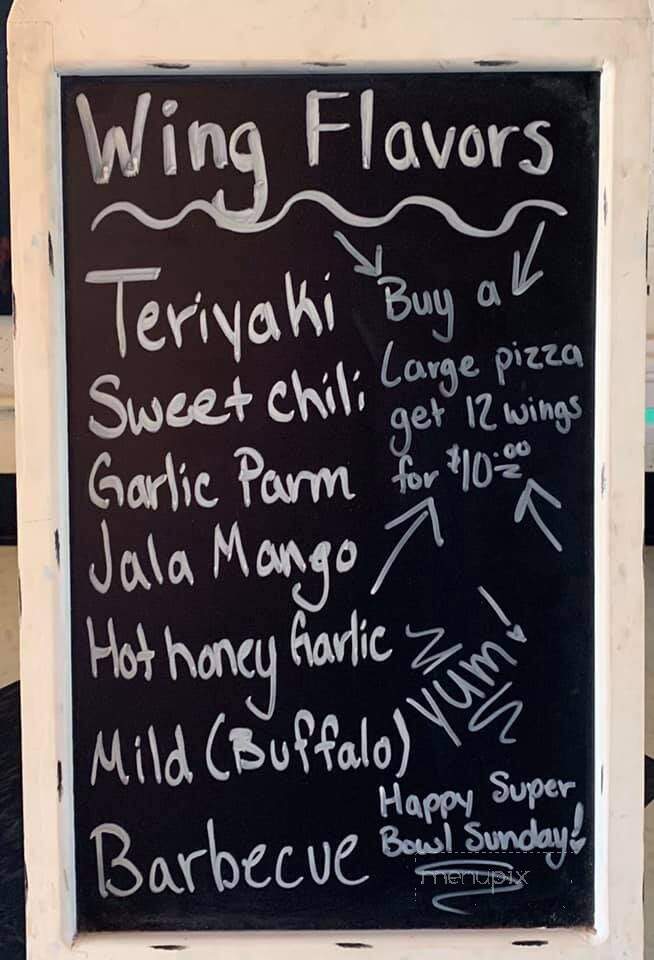 Wing Flavors
Teriyaki
Sweet chili
Garlic Parm
Jala Mango
Hot honey Garlic
Mild (Buffalo)
Barbecue
Buy a
Large pizza
get 12 wings
for $10.00
Yum!
Happy Super
Bowl Sunday!
menupix